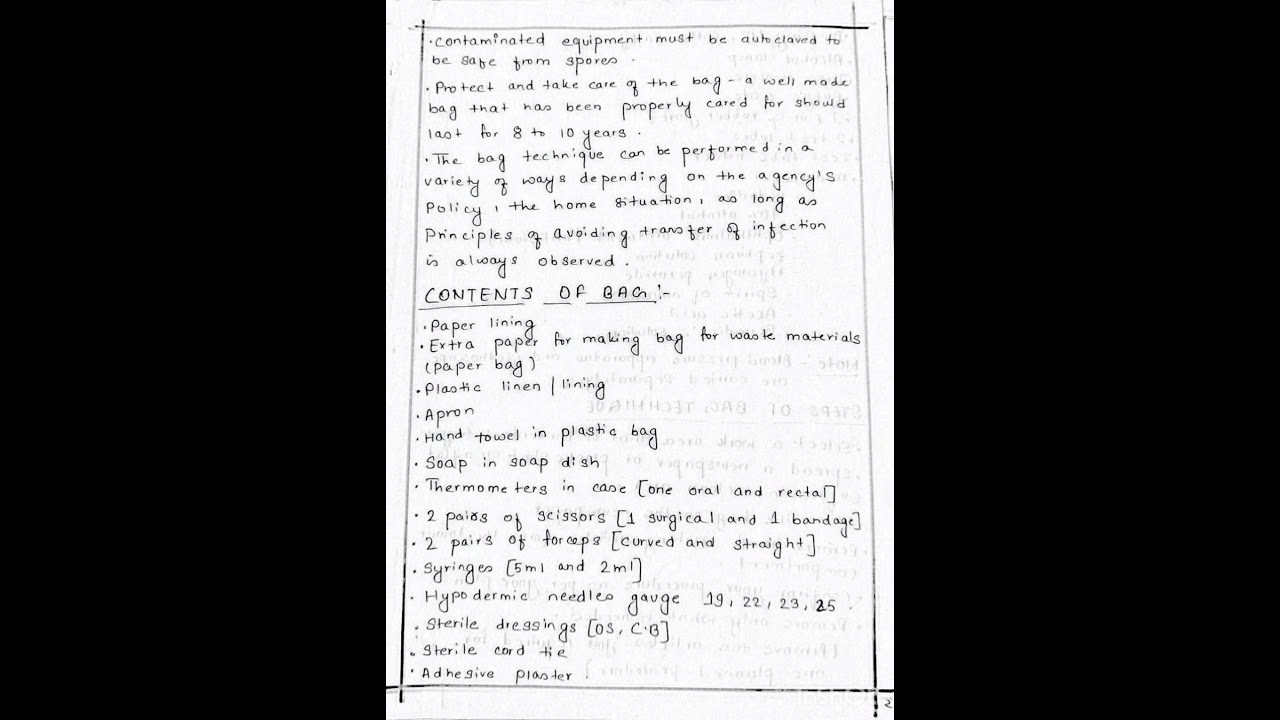 · Contaminated equipment must be autoclaved to
be safe from spores.
· Protect and take care of the bag - a well made
bag that has been properly cared for should
last for 8 to 10 years.
· The bag technique can be performed in a
variety of ways depending on the agency's
Policy, the home situation, as long as
Principles of avoiding transfer of infection
is always observed.
CONTENTS OF BAG :-
· Paper lining
· Extra paper for making bag for waste materials
(paper bag)
· Plastic linen / lining
· Apron
· Hand towel in plastic bag
· Soap in soap dish
· Thermometers in case [one oral and rectal]
· 2 pairs of scissors [1 surgical and 1 bandage]
· 2 pairs of forceps [curved and straight]
· Syringes [5ml and 2ml]
· Hypodermic needles gauge 19, 22, 23, 25.
· Sterile dressings [OS, C.B]
· Sterile cord tie
· Adhesive plaster
2